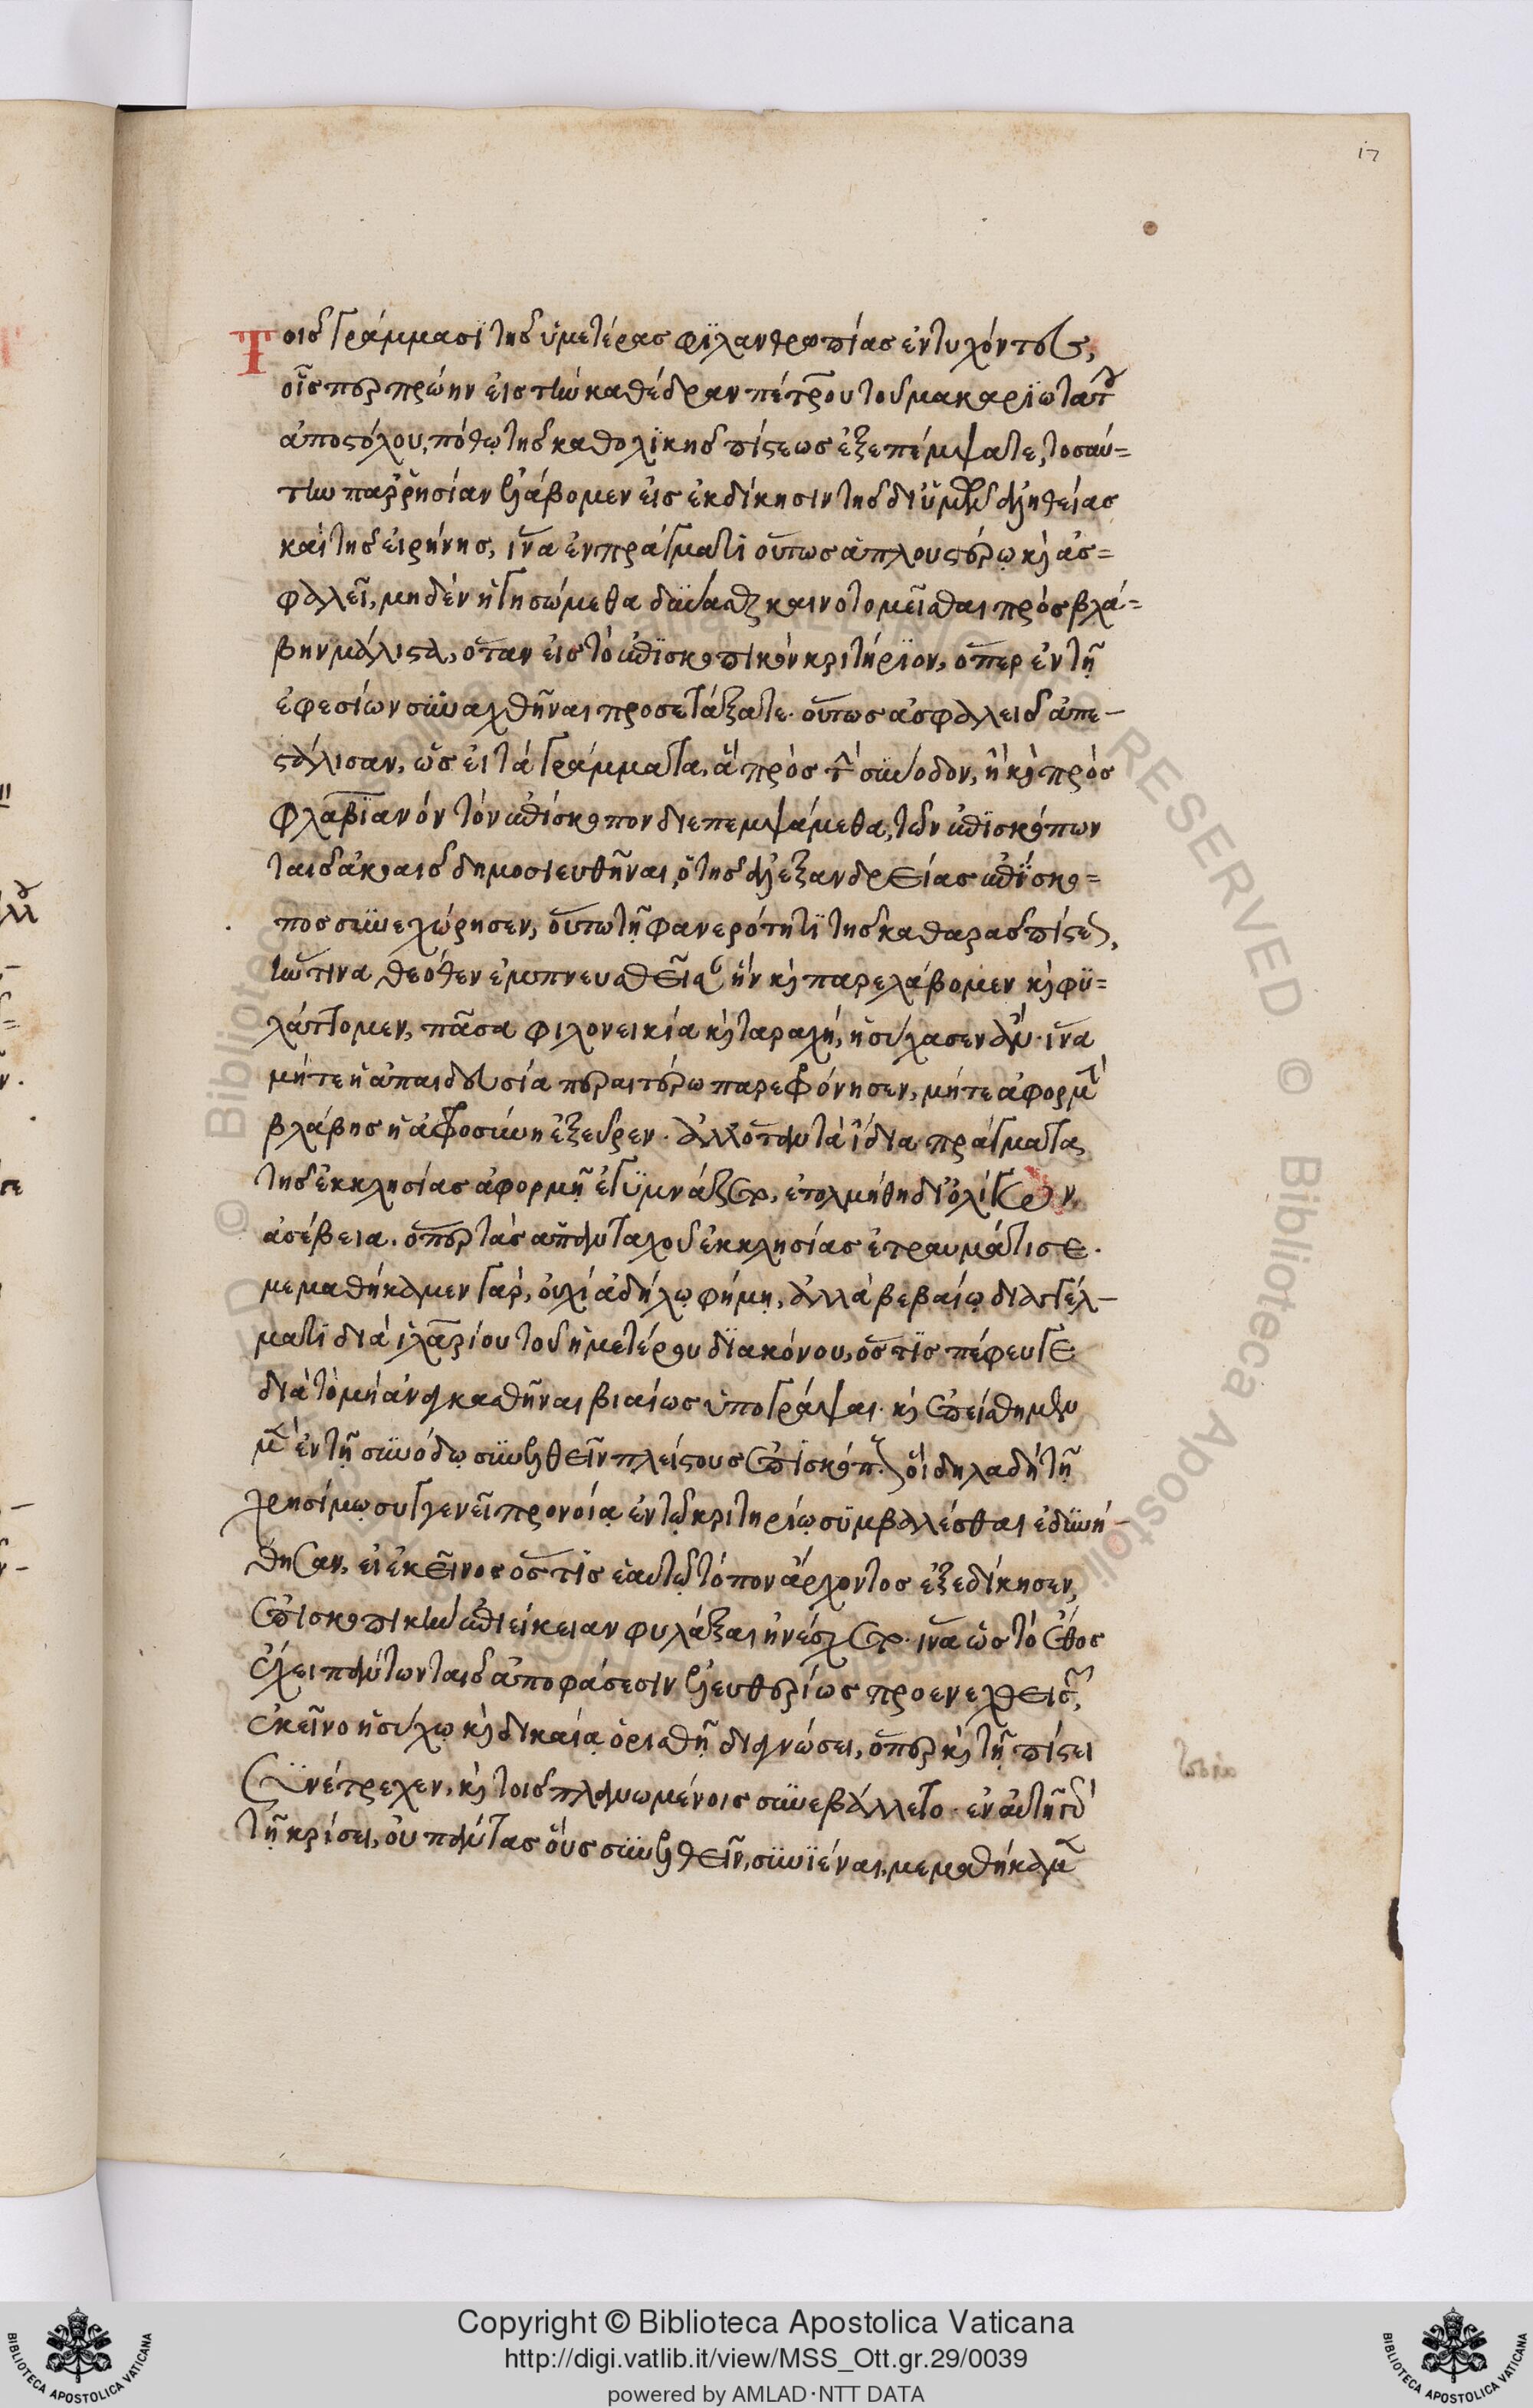 17
Τοῖς γράμμασϊ τῆς ὑμετέρας φϊλανθρωπίας ἐντυχόντες,
οἷς περ πρώην εἰς τὴν καθέδραν πέτρου τοῦ μακαριωτάτου
ἀποστόλου, πόθῳ τῆς καθολϊκῆς πίστεως ἐξεπέμψατε, τοσαύ=
την παρῥησίαν ἐλάβομεν εἰς ἐκδίκησιν τῆς δι ὑμῶν ἀληθείας
καὶ τῆς εἰρήνης, ἵνα ἐν πράγματι οὕτως ἁπλουστέρω καὶ ἀσ=
φαλεῖ, μηδὲν ἡγησώμεθα δύνασθαι καινοτομεῖσθαι πρὸς βλά=
βην μάλιστα, ὅταν εἰς τὸ ἐπϊσκοπικὸν κριτήριον, ὅπερ ἐν τῇ
ἐφεσίων συναχθῆναι προσετάξατε. οὕτως ἀσφαλεῖς ἀπε-
στάλησαν, ὡς εἰ τὰ γράμματα, ἃ πρὸς τὴν σύνοδον, ἢ καὶ πρὸς
Φλαβϊανὸν τὸν ἐπίσκοπον διεπεμψάμεθα, τῶν ἐπϊσκόπων
ταῖς ἀκοαῖς δημοσιευθῆναι, ὁ τῆς ἀλεξανδρείας ἐπίσκο=
πος συνεχώρησεν, οὕτω τῇ φανερότητϊ τῆς καθαρᾶς πίστεως,
ἥντινα θεόθεν ἐμπνευσθεῖσαν ἣν καὶ παρελάβομεν καὶ φϋ=
λάττομεν, πᾶσα φιλονεικία καὶ ταραχή, ἡσύχασεν ἄν. ἵνα
μήτε ἡ ἀπαιδευσία περαιτέρω παρεφρόνησεν, μήτε ἀφορμὴν
βλάβης ἡ ἀφροσύνη ἐξεῦρεν. ἀλλ' ὅταν τὰ ἴδια πράγματα
τῆς ἐκκλησίας ἀφορμῇ ἐγύμναζερ, ἐτολμήθη δι ὀλίγων,
ἀσέβεια. ὅπερ τὰς ἁπανταχοῦ ἐκκλησίας ἐτραυμάτισε.
μεμαθήκαμεν γὰρ, οὐχὶ ἀδήλῳ φήμῃ, ἀλλὰ βεβαίῳ διαστέλ-
ματι διὰ ἱλαρίου τοῦ ἡμετέρου διακόνου, ὅστις πέφευγε
διὰ τὸ μὴ ἀναγκασθῆναι βιαίως ὑπογράψαι. καὶ ἐπείσθημεν
μὲν ἐν τῇ συνόδῳ συνελθεῖν πλείστους ἐπισκόπους, οἳ δηλαδὴ τῇ
χρησίμῳ συγγενεῖ προνοίᾳ ἐν τῷ κριτηρίῳ συμβαλέσθαι ἐδυνή-
θησαν, εἰ ἐκεῖνος ὅστις ἑαυτῷ τόπον ἄρχοντος ἐξεδίκησεν,
ἐπισκοπικὴν ἐπιείκειαν φυλάξαι ἠνέσχερ. ἵνα ὡς τὸ ἔθος
ἔχει πάντων ταῖς ἀποφάσεσιν ἐλευθερίως προενεχθείσαις,
ἐκεῖνο ἡσύχῳ καὶ δικαίᾳ ὁρισθῇ διαγνώσει, ὅπερ καὶ τῇ πίστει
Συνέτρεχεν, καὶ τοῖς πλανωμένοις συνεβάλλετο. ἐν αὐτῇ δὲ
τῇ κρίσει, οὐ πάντας οὓς συνελθεῖν, συνϊέναι, μεμαθήκαμεν
Copyright © Biblioteca Apostolica Vaticana
http://digi.vatlib.it/view/MSS_Ott.gr.29/0039
powered by AMLAD·NTT DATA